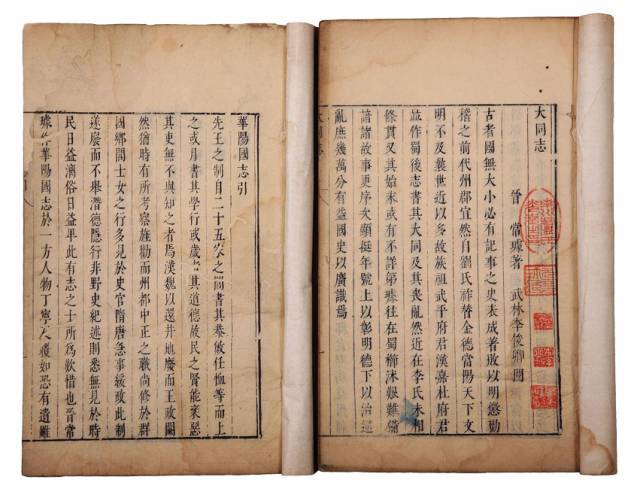 大同志
晉 常璩著 武林李俊卿閱
古者國無大小必有記事之史表成著敗以明懲勸
稽之前代州郡宜然自劉氏祚替金德當陽天下文
明不及曩世近以多故族祖武平府君漢嘉杜府君
並作蜀後志書其大同及其喪亂然逮在李氏未相
條貫又其始末或有不詳第璩往在蜀櫛沐艱難備
諳諸故事更序次顯挺年號上以彰明德下以治違
亂庶幾萬分有益國史以廣識焉
華陽國志引
先王之制自二十五家之閭書其恭敏任恤等而上
之或月書其學行或歲考其道德故民之賢能業惡
其吏無不與知之者焉漢魏以還井地廢而王政闕
然猶時有所考察旌勸而州都中正之職尚修於群
國鄉閭士女之行多見於史官隋唐急事緩政此制
遂廢而不舉潛德隱行非野史紀述則悉無見於時
民日益漓俗日益卑此有志之士所為歎惜也晉常
璩作華陽國志於一方人物丁寧反覆如恐有遺雖